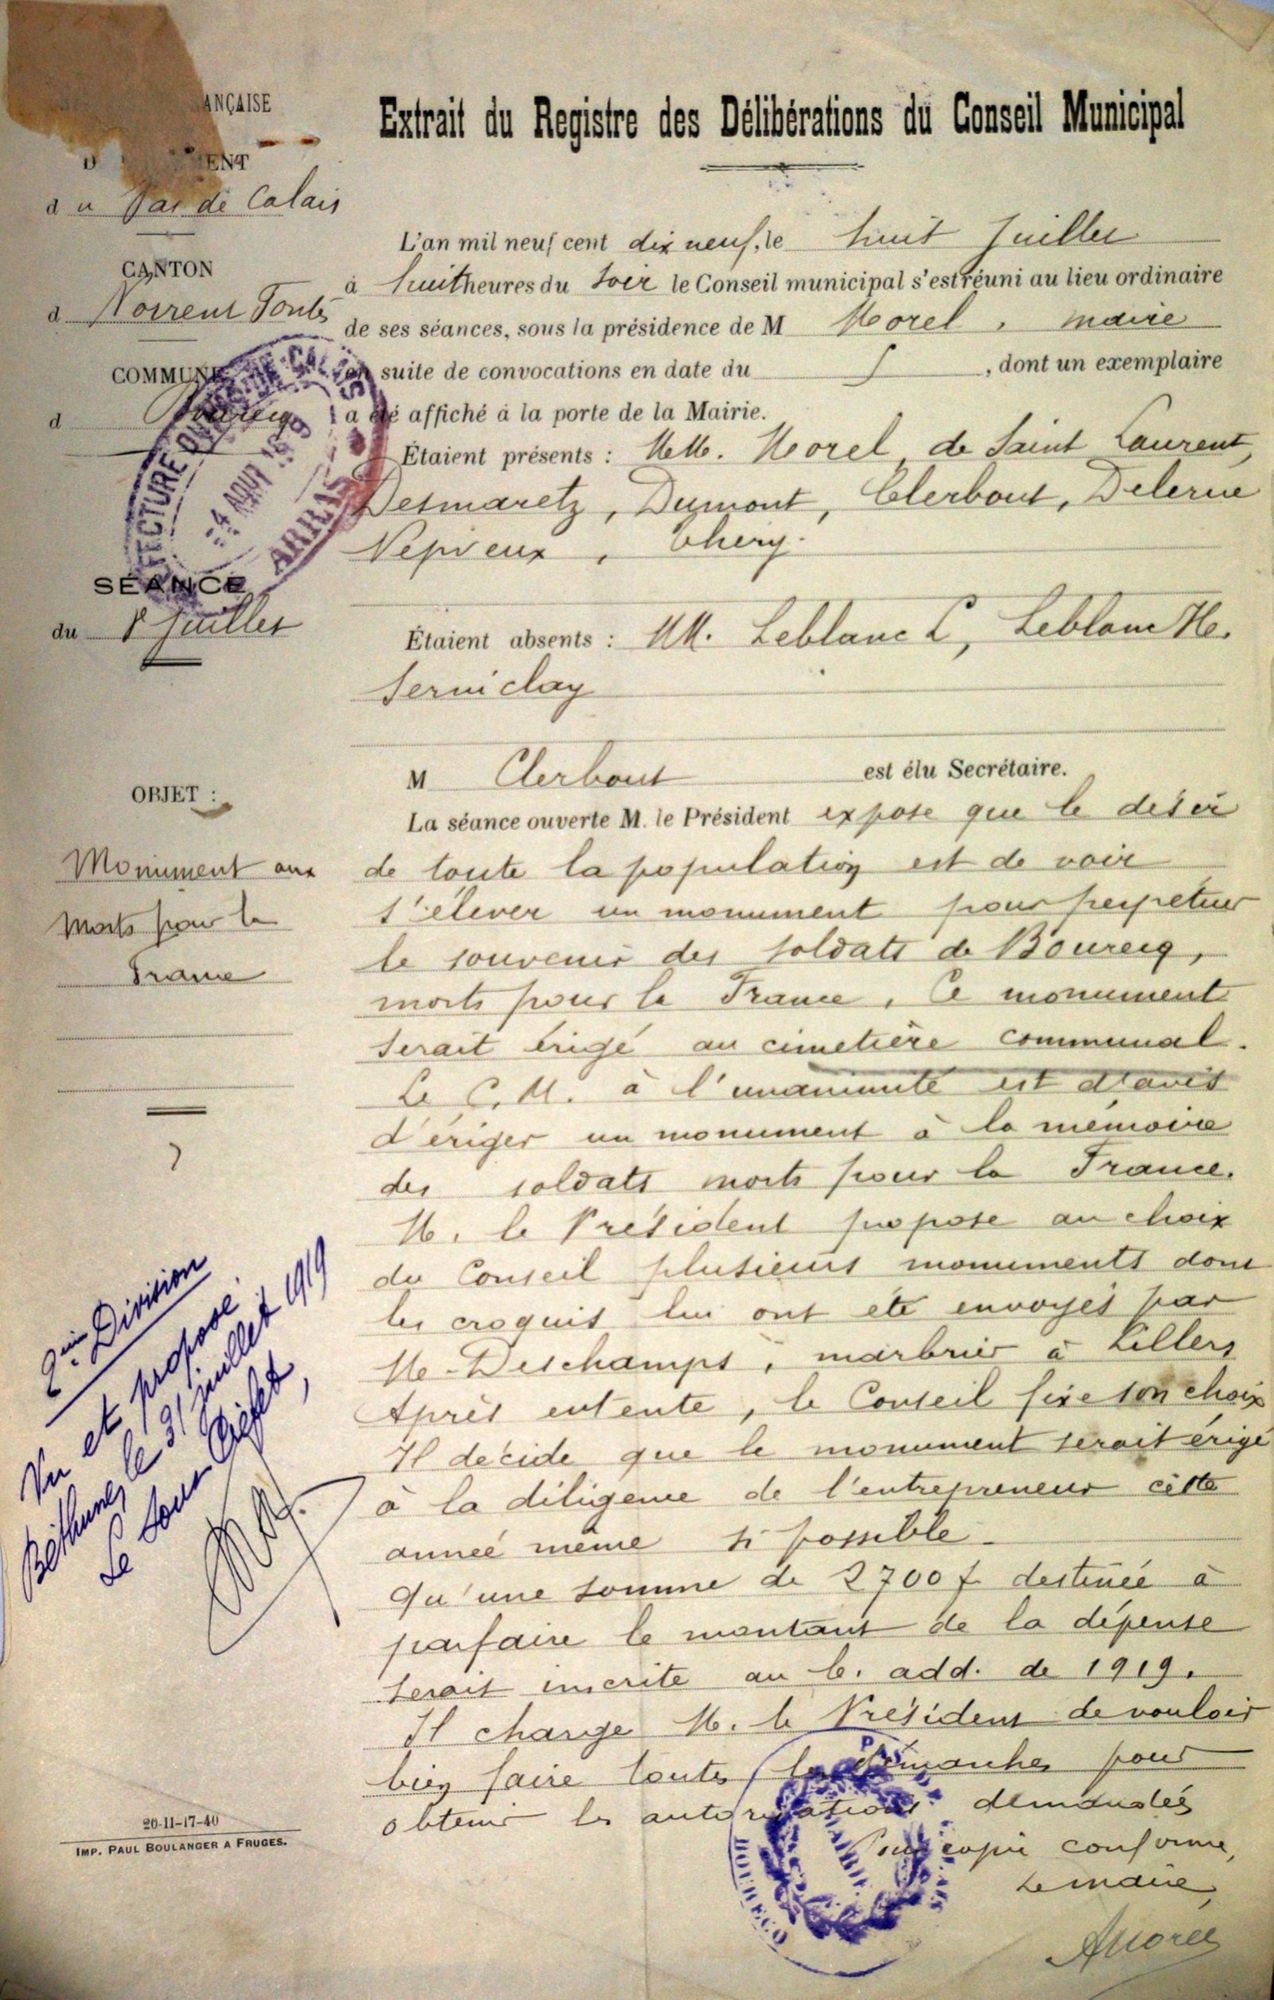 ANÇAISE
ENT
du Pas de Calais
CANTON
d Norrent Fontes
COMMUNE
d Bourecq
PRÉFECTURE DU PAS-DE-CALAIS
4 AOUT 1919
ARRAS
SÉANCE
du 8 Juillet
OBJET :
Monument aux
Morts pour la
France
2ème Division
Vu et proposé
Béthune, le 31 juillet 1919
Le Sous Préfet,
20-11-17-40
IMP. PAUL BOULANGER A FRUGES.
Extrait du Registre des Délibérations du Conseil Municipal
L'an mil neuf cent dix neuf, le huit Juillet
à huit heures du soir le Conseil municipal s'est réuni au lieu ordinaire
de ses séances, sous la présidence de M Morel, maire
en suite de convocations en date du , dont un exemplaire
a été affiché à la porte de la Mairie.
Étaient présents : MM. Morel, de Saint Laurent,
Desmaretz, Dumont, Clerbout, Delerue
Nepveux, Thery.
Étaient absents : MM. Leblanc L, Leblanc H.
Serniclay
M Clerbout est élu Secrétaire.
La séance ouverte M. le Président expose que le désir
de toute la population est de voir
s'élever un monument pour perpétuer
le souvenir des soldats de Bourecq,
morts pour la France. Ce monument
serait érigé au cimetière communal.
Le C. M. à l'unanimité est d'avis
d'ériger un monument à la mémoire
des soldats morts pour la France.
M. le Président propose au choix
du Conseil plusieurs monuments dont
les croquis lui ont été envoyés par
M. Deschamps, marbrier à Lillers
Après entente, le Conseil fixe son choix
Il décide que le monument serait érigé
à la diligence de l'entrepreneur cette
année même si possible.
Qu'une somme de 2700 f destinée à
parfaire le montant de la dépense
serait inscrite au b. add. de 1919.
Il charge M. le Président de vouloir
bien faire toutes les démarches pour
obtenir les autorisations demandées
Pour copie conforme,
Le maire,
AMorel
MAIRIE
BOURECQ
PAS